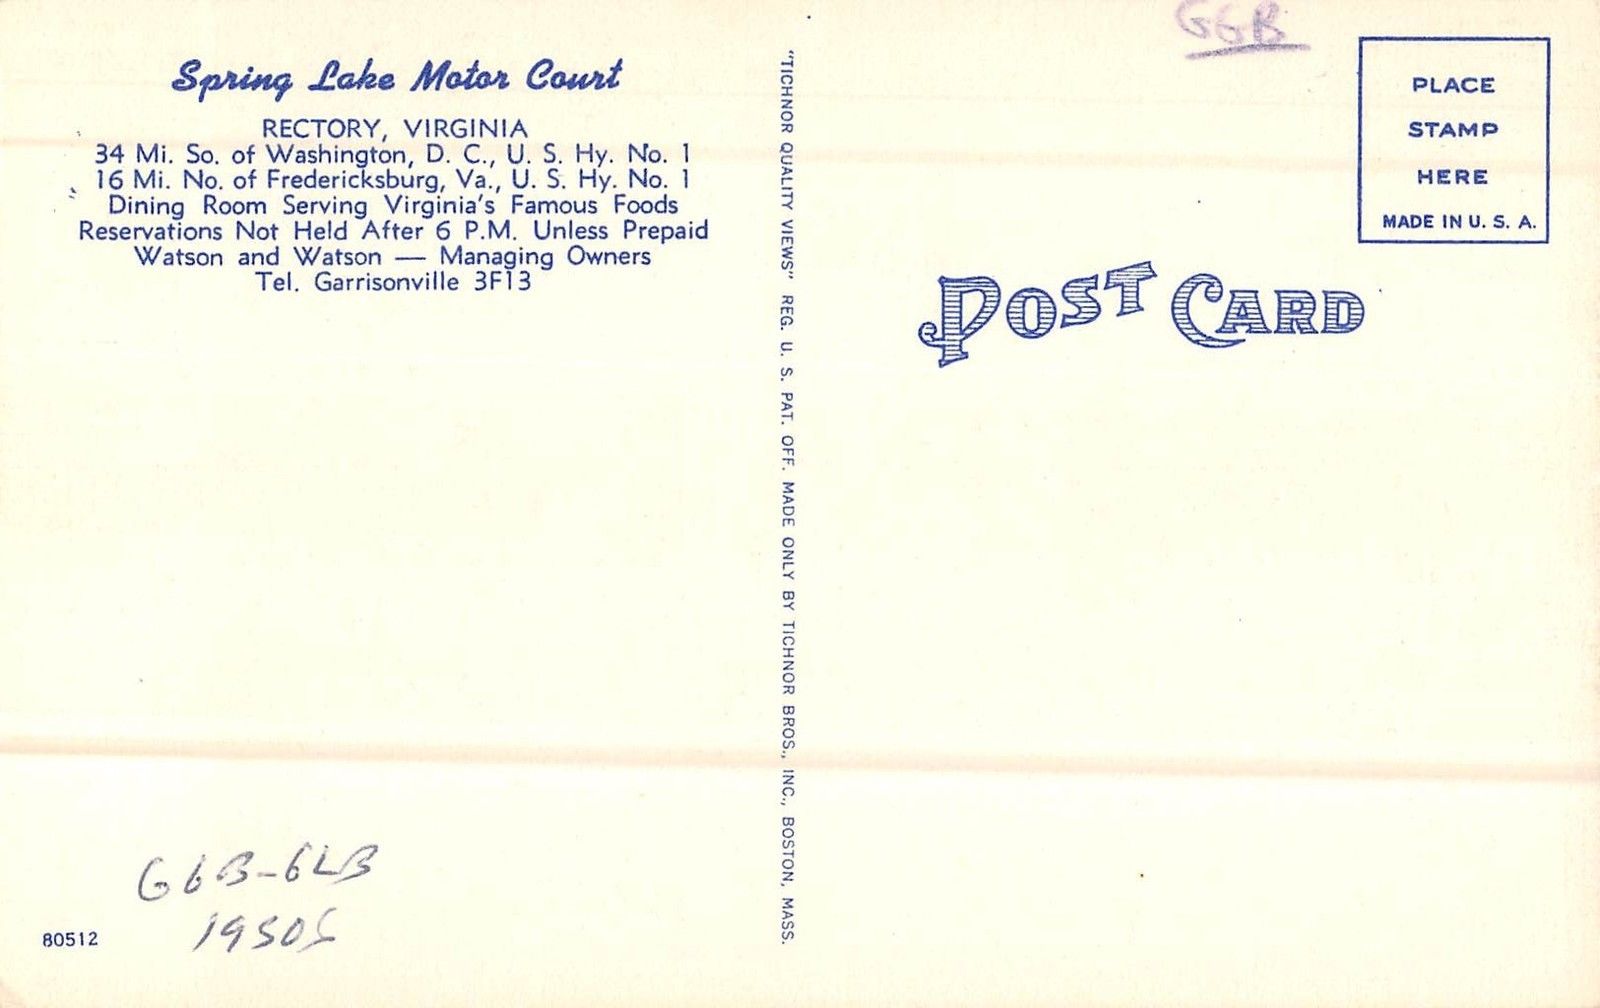 Spring Lake Motor Court
RECTORY, VIRGINIA
34 Mi. So. of Washington, D. C., U. S. Hy. No. 1
16 Mi. No. of Fredericksburg, Va., U. S. Hy. No. 1
Dining Room Serving Virginia's Famous Foods
Reservations Not Held After 6 P.M. Unless Prepaid
Watson and Watson — Managing Owners
Tel. Garrisonville 3F13
80512
1950s
"TICHNOR QUALITY VIEWS" REG. U. S. PAT. OFF. MADE ONLY BY TICHNOR BROS., INC., BOSTON, MASS.
GGB
PLACE
STAMP
HERE
MADE IN U. S. A.
POST CARD